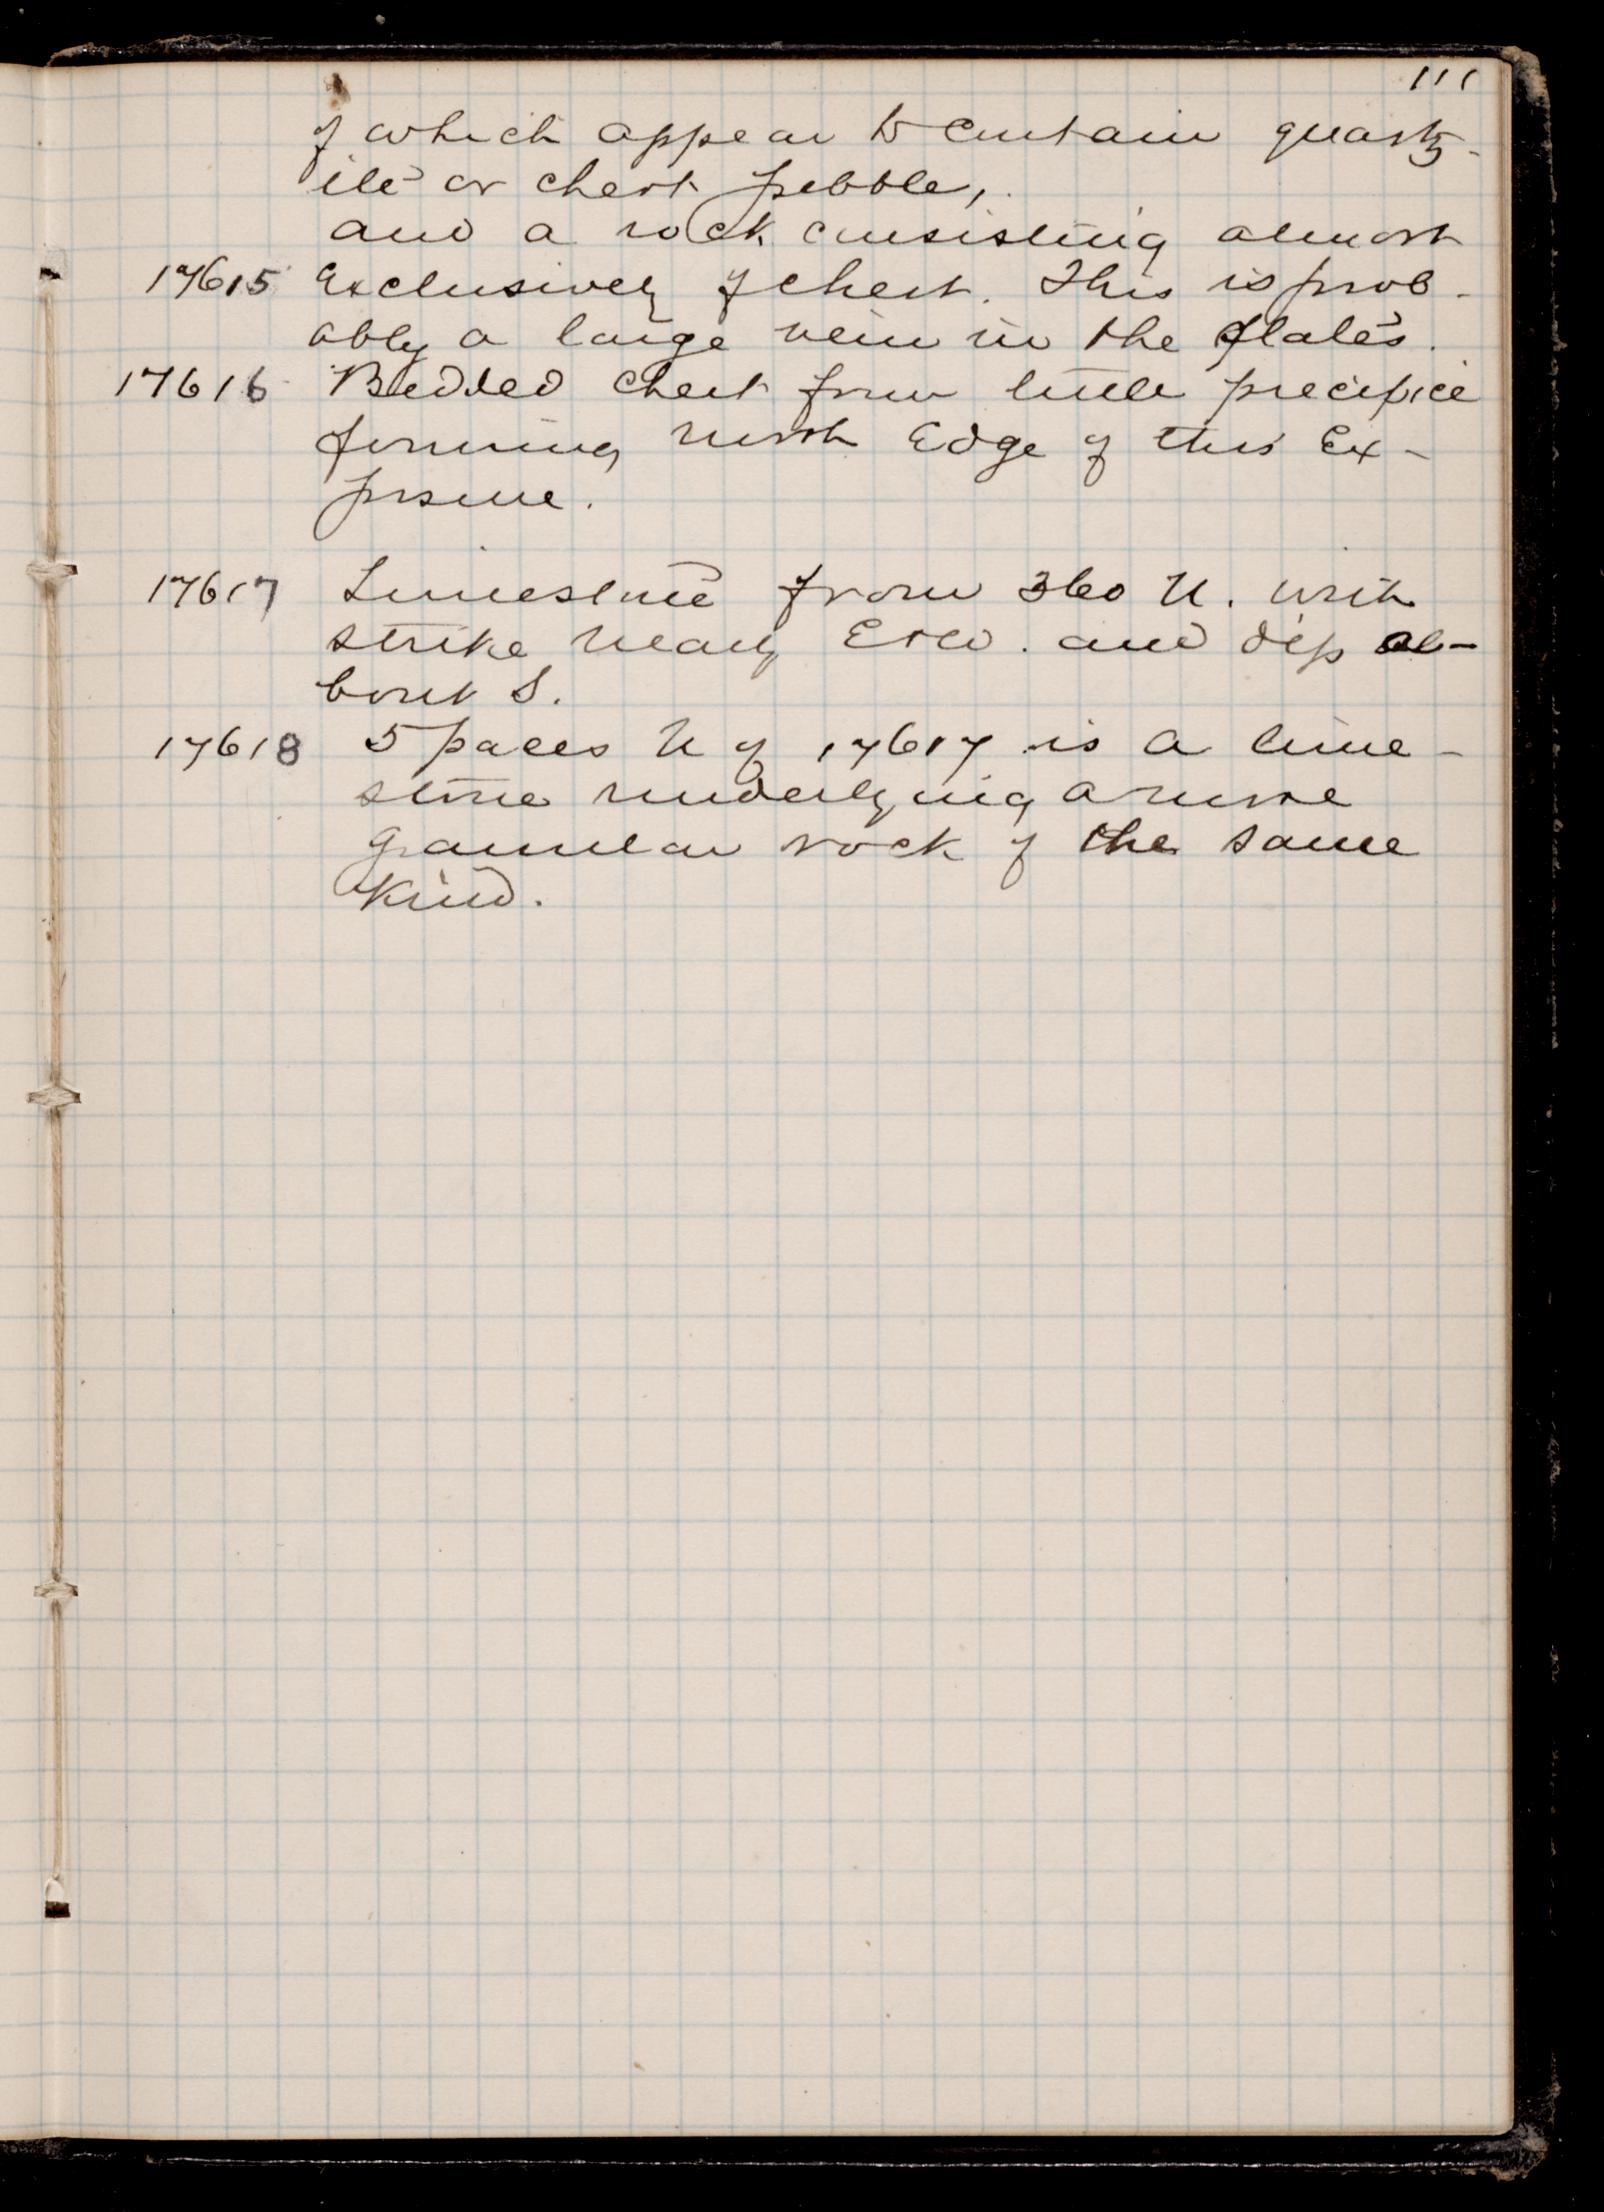 111
of which appear to contain quartz-
ite or chert pebble,
and a rock consisting almost
17615 exclusively of chert. This is prob-
ably a large vein in the slates.
17616 Bedded chert from little precipice
forming north edge of this ex-
posure.
17617 Limestone from 360 N. with
strike nearly E + W. and dip a-
bout S.
17618 5 paces N of 17617 is a lime-
stone underlying a more
granular rock of the same
kind.